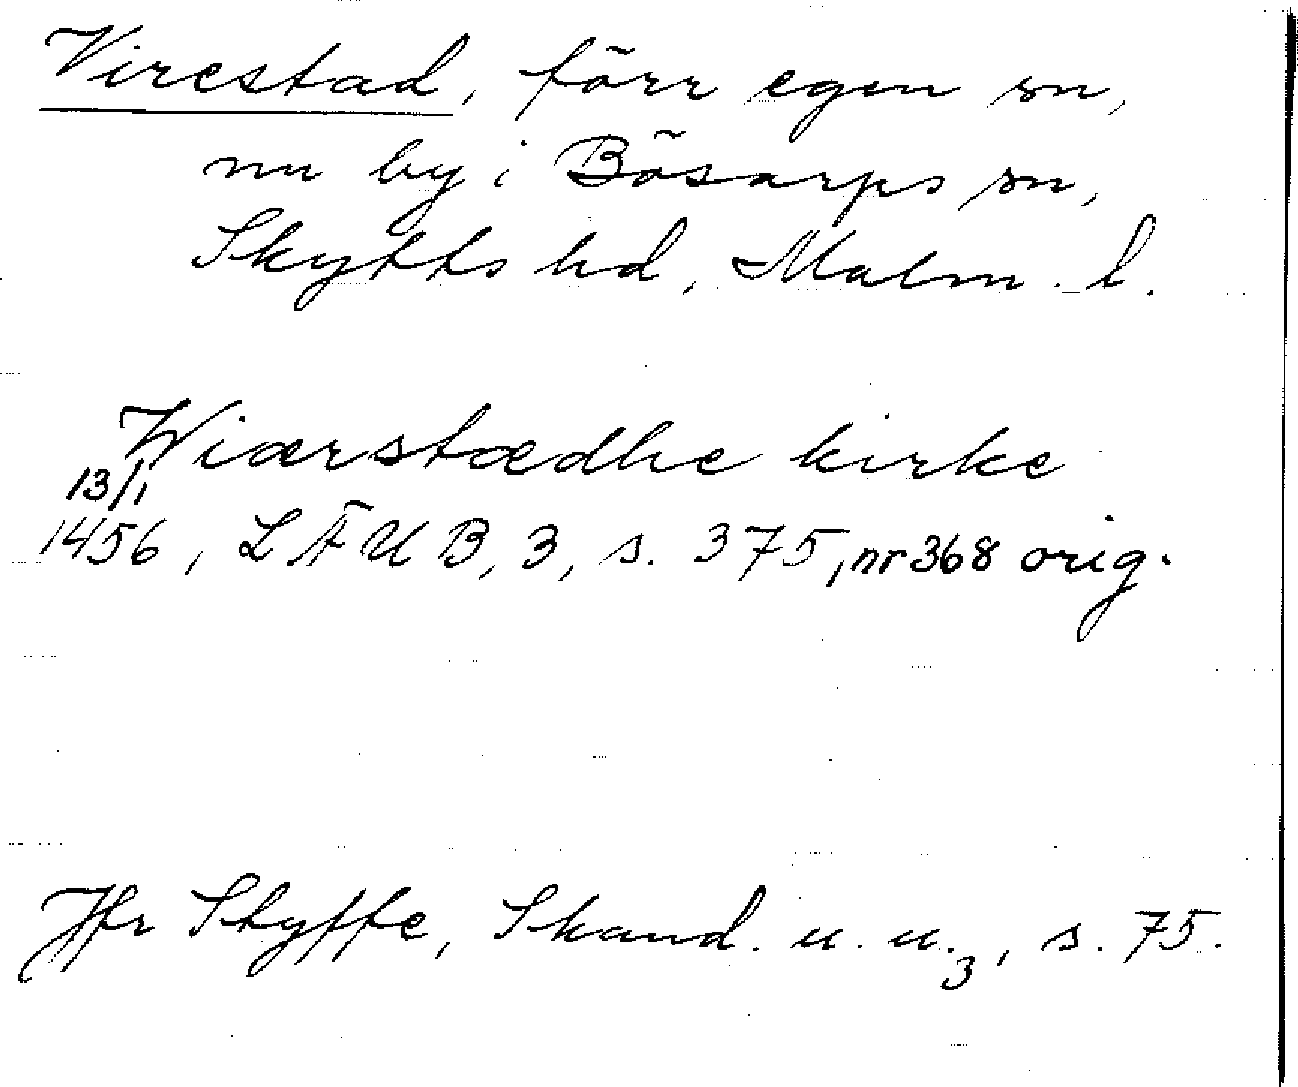 Virestad, förr egen sn,
nu by i Bösarps sn,
Skytts hd, Malm. l.
Wiærstædhe kirke
13/1
1456, LÄUB, 3, s. 375, nr 368 orig.
Jfr Styffe, Skand. u. u.3, s. 75.